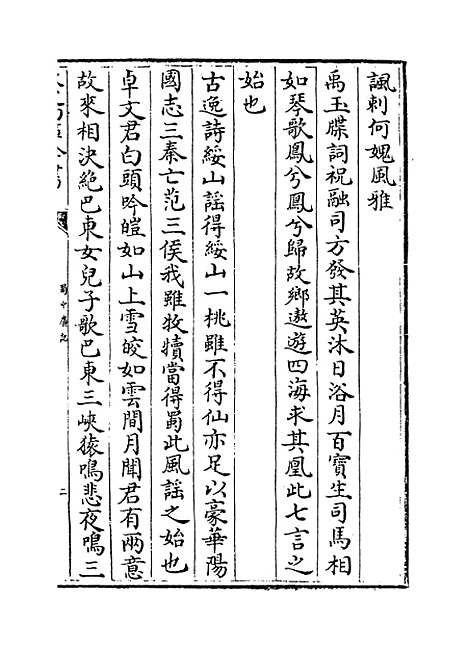 諷刺何媿風雅
禹玉牒詞祝融司方發其英沐日浴月百寶生司馬相
如琴歌鳳兮鳳兮歸故鄉遨遊四海求其凰此七言之
始也
古逸詩綏山謡得綏山一桃雖不得仙亦足以豪華陽
國志三秦亡范三侯我雖牧犢當得蜀此風謡之始也
卓文君白頭吟皚如山上雪皎如雲間月聞君有兩意
故來相決絶巴東女兒子歌巴東三峽猿鳴悲夜鳴三
蜀中廣記
二